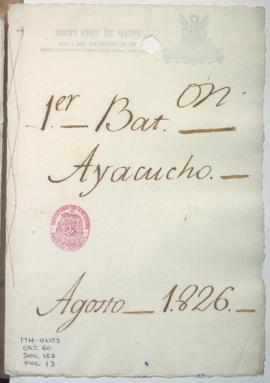 1.er Bat.on
Ayacucho.
Agosto 1.826.
MH-04152
CAJ. 60
DOC. 157
FOL. 13